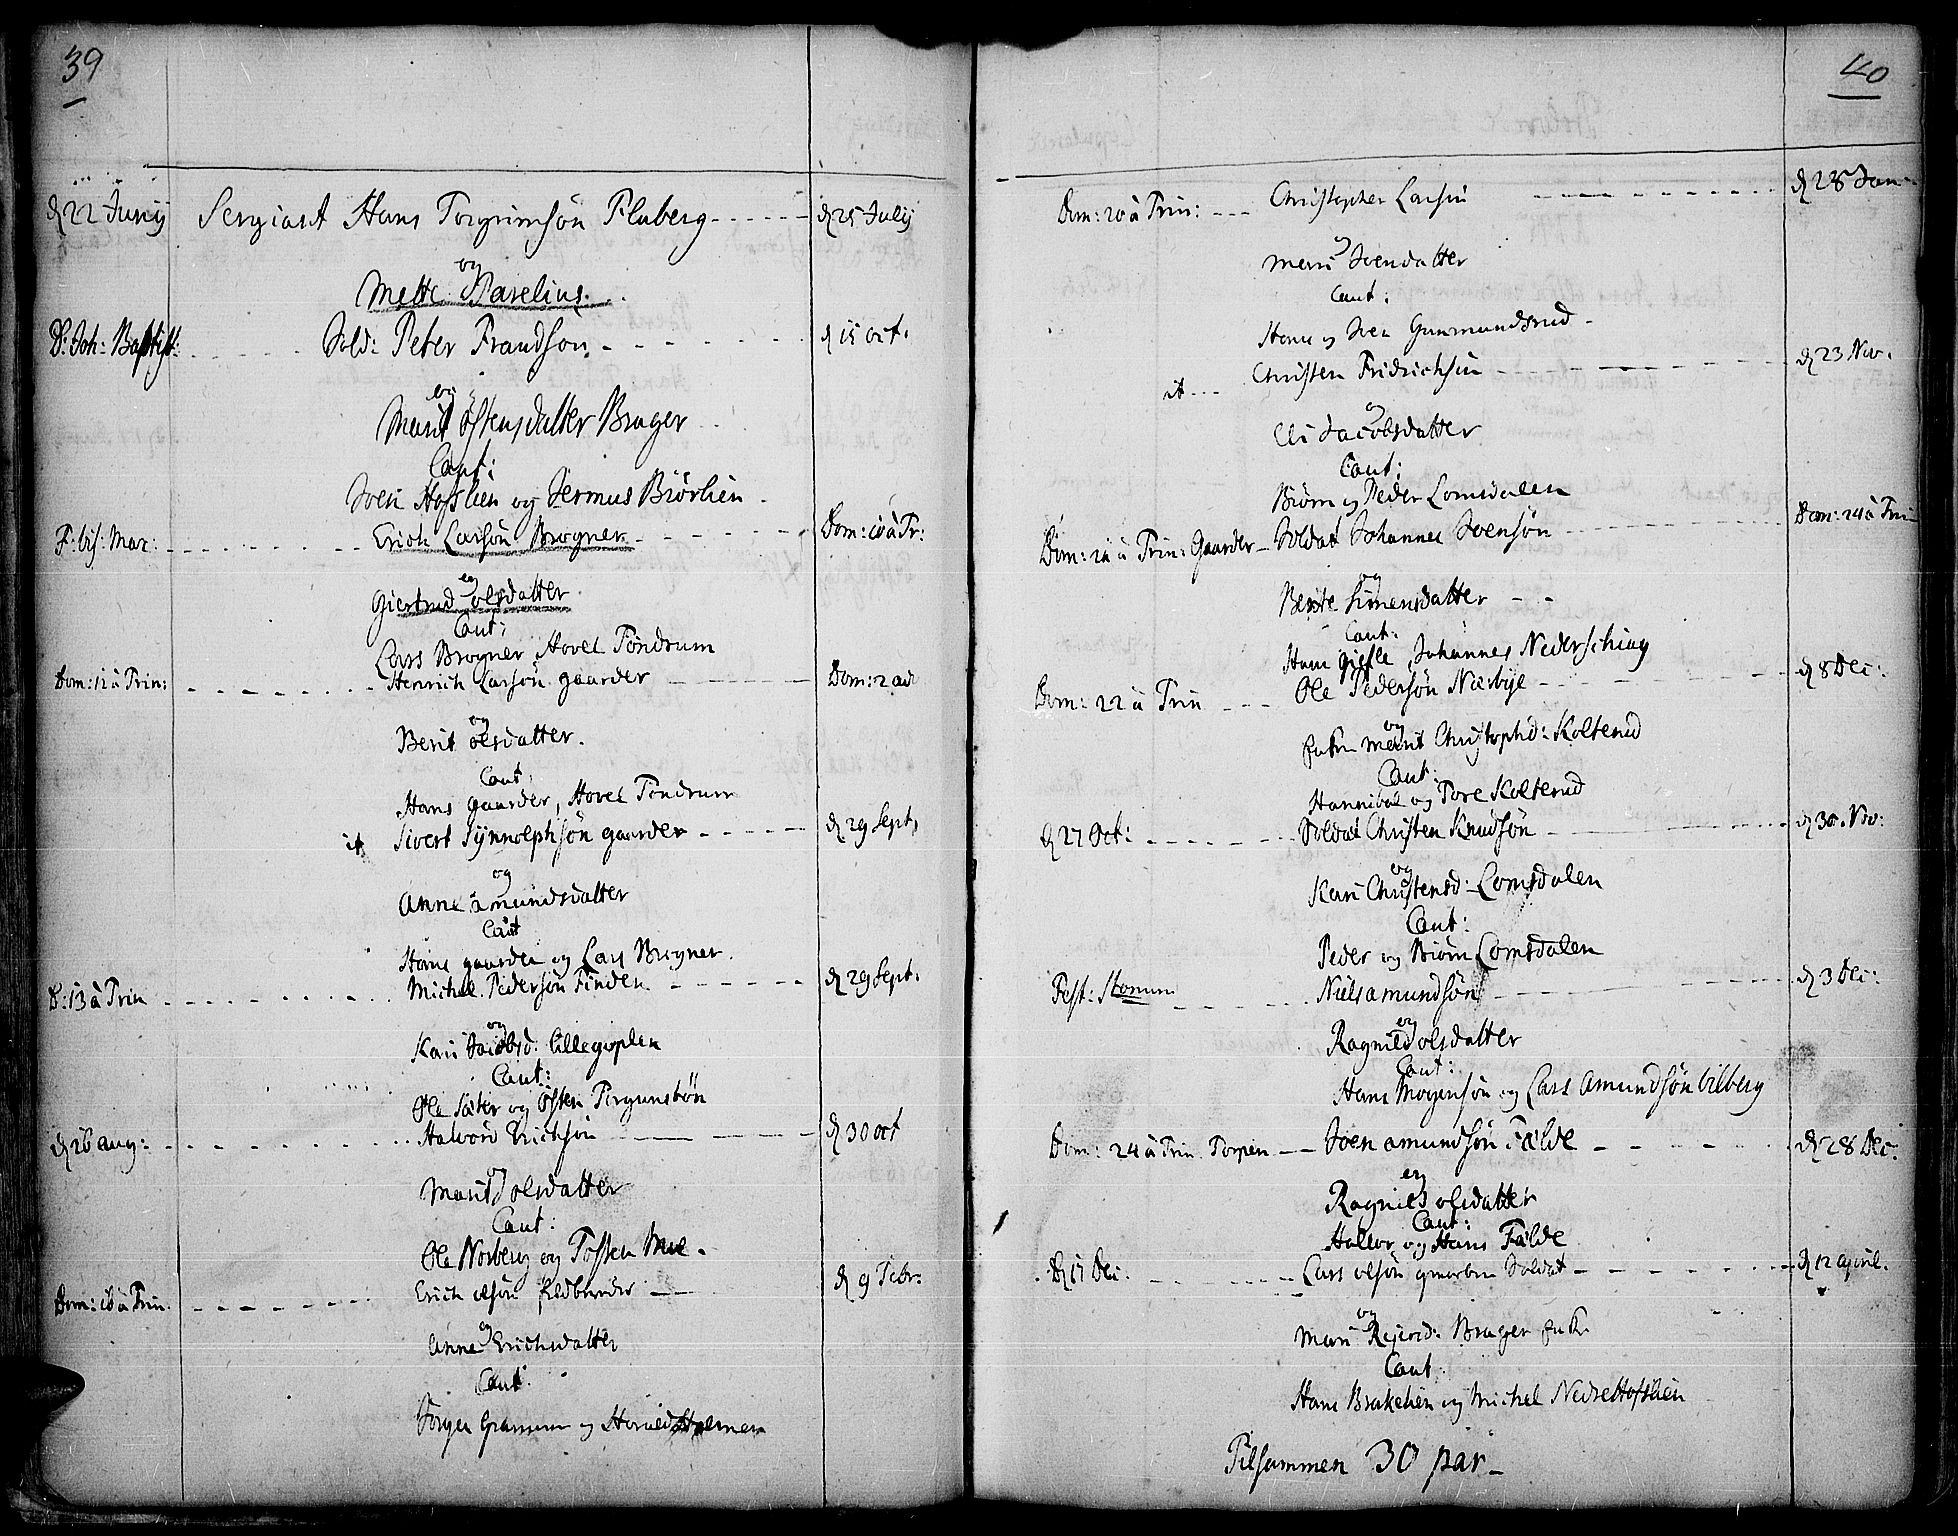 39
d 22 Junij Sergiant Hans Torgrimsön Fluberg d 25 Julij
og
Mette Parelius.
D: Joh: Baptist: Sold: Peter Frandson d 15 oct:
og
Marit Östensdatter Brager
Caut:
Iven Hofslien og Siermus Biörlien
F: vis: Mar: Erich Larsön Brogner Dom: 18 à Tr:
og
Giertrud olsdatter
Caut:
Lars Brogner, Hovel Töndrum
Dom: 12 à Trin: Henrich Larsön gaarder Dom: 2 adv
og
Berit olsdatter.
Caut
Hans gaarder, Hovel Töndrum
it Sivert Synnolphsön gaarder d 29 Sept:
og
Anne amundsdatter
Caut
Hans gaarder og Lars Brogner.
D: 13 à Trin Michel Pedersön Finden d 29 Sept:
og
Kari Jacobsd: Lillegoplen
Caut:
Ole Sæter og Östen Torgunsbön
d 26 aug: Halvord Erichsön d 30 oct
og
Marit olsdatter
Caut:
Ole Norberg og Tosten Moe.
Dom: 18 à Trin. Erich olsön d 9 Febr:
og
Anne Erichsdatter
Caut.
Torger og
40
Dom: 20 à Trin: Christopher Larsön d 28 Jan:
og
Mari Ivensdatter
Caut:
Hans og Iver Gunmundsrud
it Christen Fridrichsön d 23 Nov:
og
Eli Jacobsdatter
Caut:
Biörn og Peder Lomsdalen
Dom: à Trin: Gaarder Soldat Johannes Ivensön Dom: 24 à Trin
og
Berte Simensdatter
Caut:
Hans gisle, Johannes Nederschiag
Dom: 22 à Trin Ole Pedersön Nærbye d 8 Dec:
og
Marit Christophd: Kolterud
Caut:
Hannibal og Tore Kolterud
d 27 Oct: Soldat Christen Knudsön d 30. Nov:
og
Kari Christensd: Lomsdalen
Caut:
Peder og Biörn Lomsdalen
Fest: Stomum Niels amundsön d 3 Dec:
og
Ragnild olsdatter
Caut:
Hans Mogensön og Lars Amundsön Vilberg
Dom: 24 à Trin Torpen Iven amundsön Fälde d 28 Dec:
og
Ragnild olsdatter
Caut:
Halvor og Hans Fälde
d 17 Dec: Lars olsön Soldat d 12 april.
og
Mari Brager
Caut.
Hans Brakelien og Michel Nedre Hofslien
Tilsammen 30 par